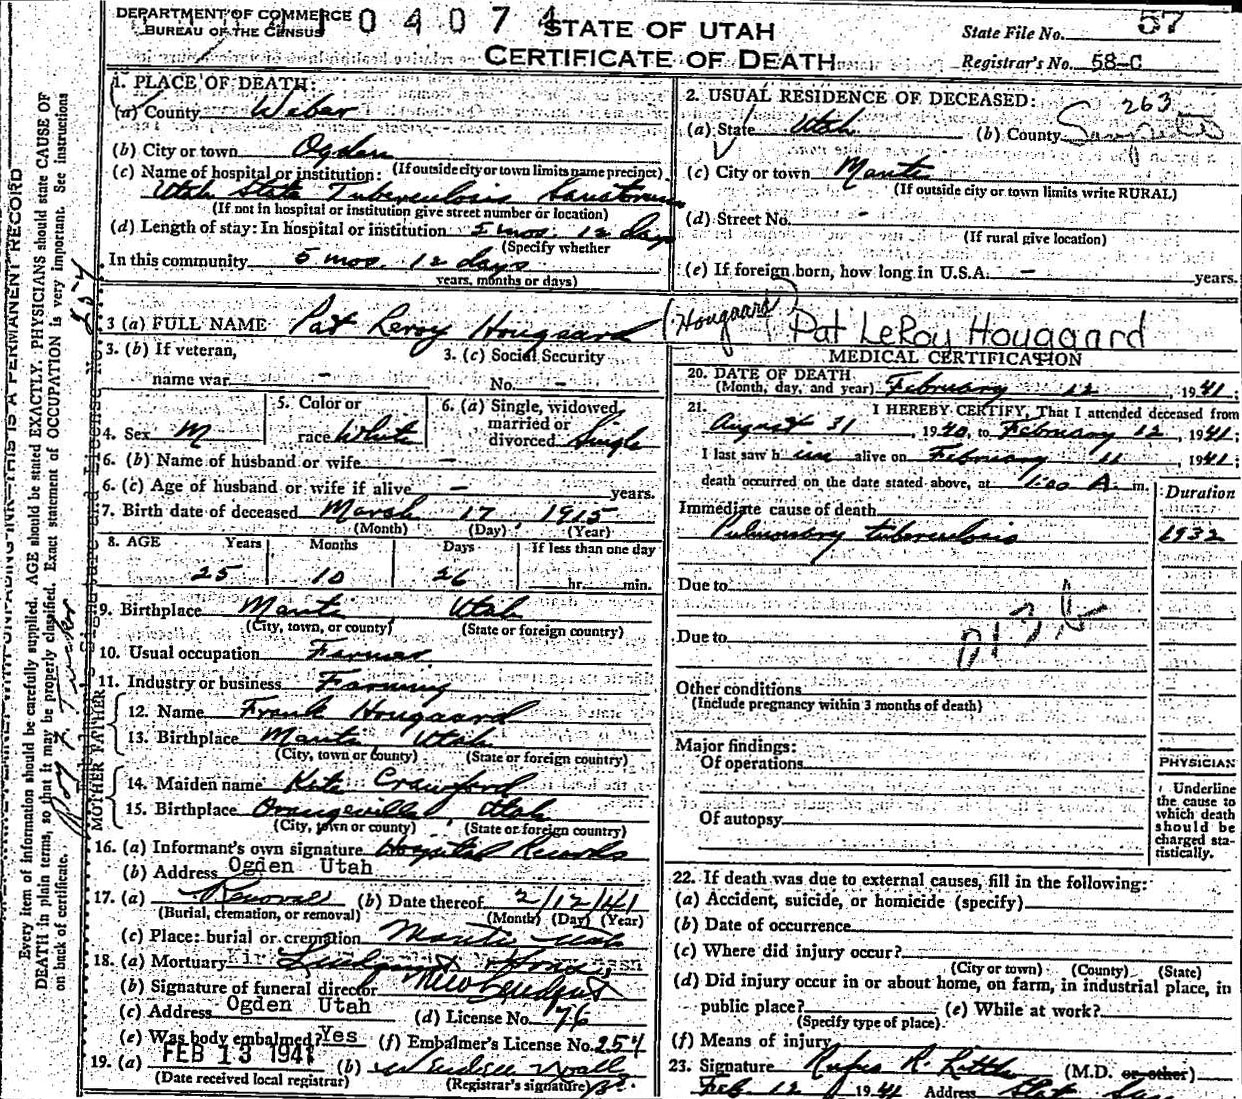 DEPARTMENT OF COMMERCE
BUREAU OF THE CENSUS
04074
STATE OF UTAH
CERTIFICATE OF DEATH
State File No. 57
Registrar's No. 58-C
1. PLACE OF DEATH:
(a) County Weber
(b) City or town Ogden
(If outside city or town limits name precinct)
(c) Name of hospital or institution:
Utah State Tuberculosis Sanatorium
(If not in hospital or institution give street number or location)
(d) Length of stay: In hospital or institution 5 mos. 12 days
(Specify whether
In this community 5 mos. 12 days
years, months or days)
2. USUAL RESIDENCE OF DECEASED:
263
(a) State Utah (b) County Sanpete
(c) City or town Manti
(If outside city or town limits write RURAL)
(d) Street No. -
(If rural give location)
(e) If foreign born, how long in U.S.A. - years.
3 (a) FULL NAME Pat Leroy Hougaard (Hougaard) Pat LeRoy Hougaard
3. (b) If veteran,
name war -
3. (c) Social Security
No. -
4. Sex M
5. Color or
race White
6. (a) Single, widowed,
married or
divorced Single
6. (b) Name of husband or wife -
6. (c) Age of husband or wife if alive - years.
7. Birth date of deceased March 17, 1915
(Month) (Day) (Year)
8. AGE Years Months Days If less than one day
25 10 26 hr. min.
9. Birthplace Manti Utah
(City, town, or county) (State or foreign country)
10. Usual occupation Farmer
11. Industry or business Farming
FATHER
12. Name Frank Hougaard
13. Birthplace Manti Utah
(City, town or county) (State or foreign country)
MOTHER
14. Maiden name Kate Crawford
15. Birthplace Orangeville, Utah
(City, town or county) (State or foreign country)
16. (a) Informant's own signature Hospital Records
(b) Address Ogden Utah
17. (a) Removal (b) Date thereof 2/12/41
(Burial, cremation, or removal) (Month) (Day) (Year)
(c) Place: burial or cremation Manti Utah
18. (a) Mortuary Lindquist & Sons
(b) Signature of funeral director
(c) Address Ogden Utah (d) License No. 76
(e) Was body embalmed? Yes (f) Embalmer's License No. 254
19. (a) FEB 13 1941 (b)
(Date received local registrar) (Registrar's signature)
MEDICAL CERTIFICATION
20. DATE OF DEATH
(Month, day, and year) February 12, 1941;
21. I HEREBY CERTIFY, That I attended deceased from
August 31, 1940, to February 12, 1941;
I last saw him alive on February 11, 1941;
death occurred on the date stated above, at 1:00 A. m.
Duration
Immediate cause of death
Pulmonary tuberculosis 1932
Due to
Due to
Other conditions
(Include pregnancy within 3 months of death)
Major findings:
Of operations
Of autopsy
PHYSICIAN
Underline
the cause to
which death
should be
charged sta-
tistically.
22. If death was due to external causes, fill in the following:
(a) Accident, suicide, or homicide (specify)
(b) Date of occurrence
(c) Where did injury occur?
(City or town) (County) (State)
(d) Did injury occur in or about home, on farm, in industrial place, in
public place? (e) While at work?
(Specify type of place)
(f) Means of injury
23. Signature Rufus R. Little (M.D. or other)
Feb. 12 1941 Address
THIS IS A PERMANENT RECORD
Every item of information should be carefully supplied. AGE should be stated EXACTLY. PHYSICIANS should state CAUSE OF
DEATH in plain terms, so that it may be properly classified. Exact statement of OCCUPATION is very important. See instructions
on back of certificate.